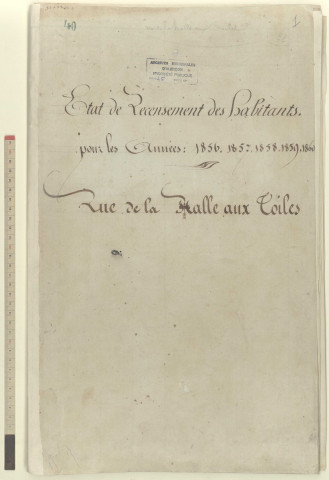 1
Etat de Recensement des habitants.
pour les Années: 1856. 1857. 1858. 1859. 1860
Rue de la Halle aux Toiles